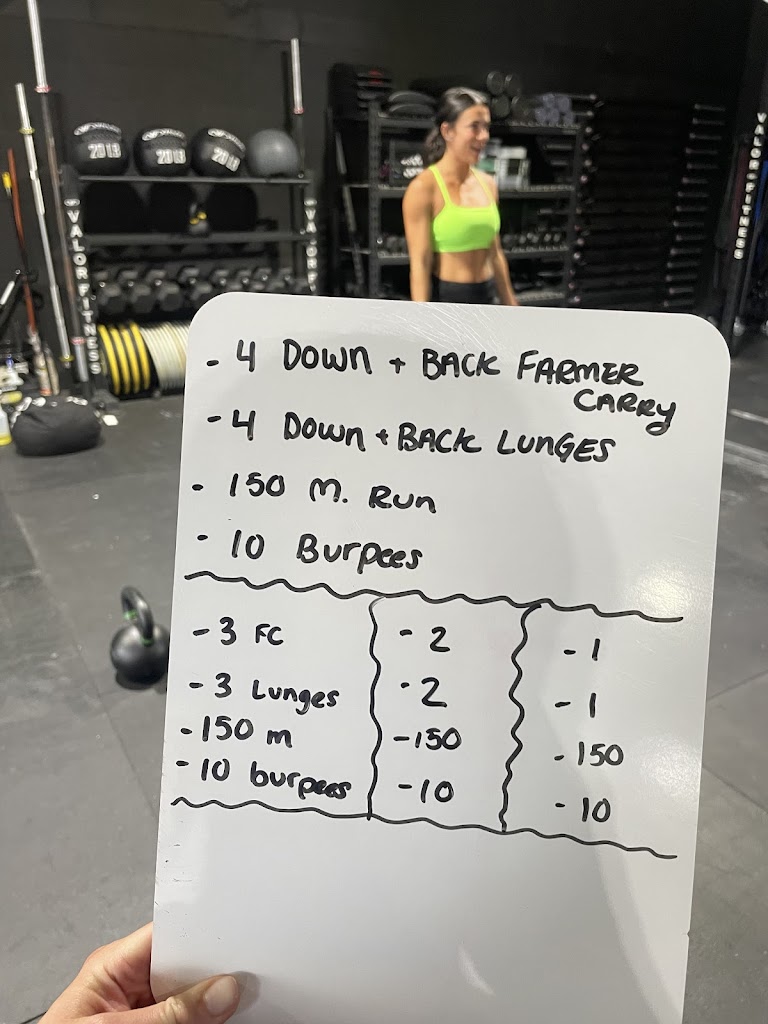 20 LB
20 LB
20 LB
VALOR FITNESS
VALOR
VALOR FITNESS
- 4 DOWN + BACK FARMER
CARRY
- 4 DOWN + BACK LUNGES
- 150 M. RUN
- 10 Burpees
- 3 FC
- 3 Lunges
- 150 m
- 10 burpees
- 2
- 2
- 150
- 10
- 1
- 1
- 150
- 10